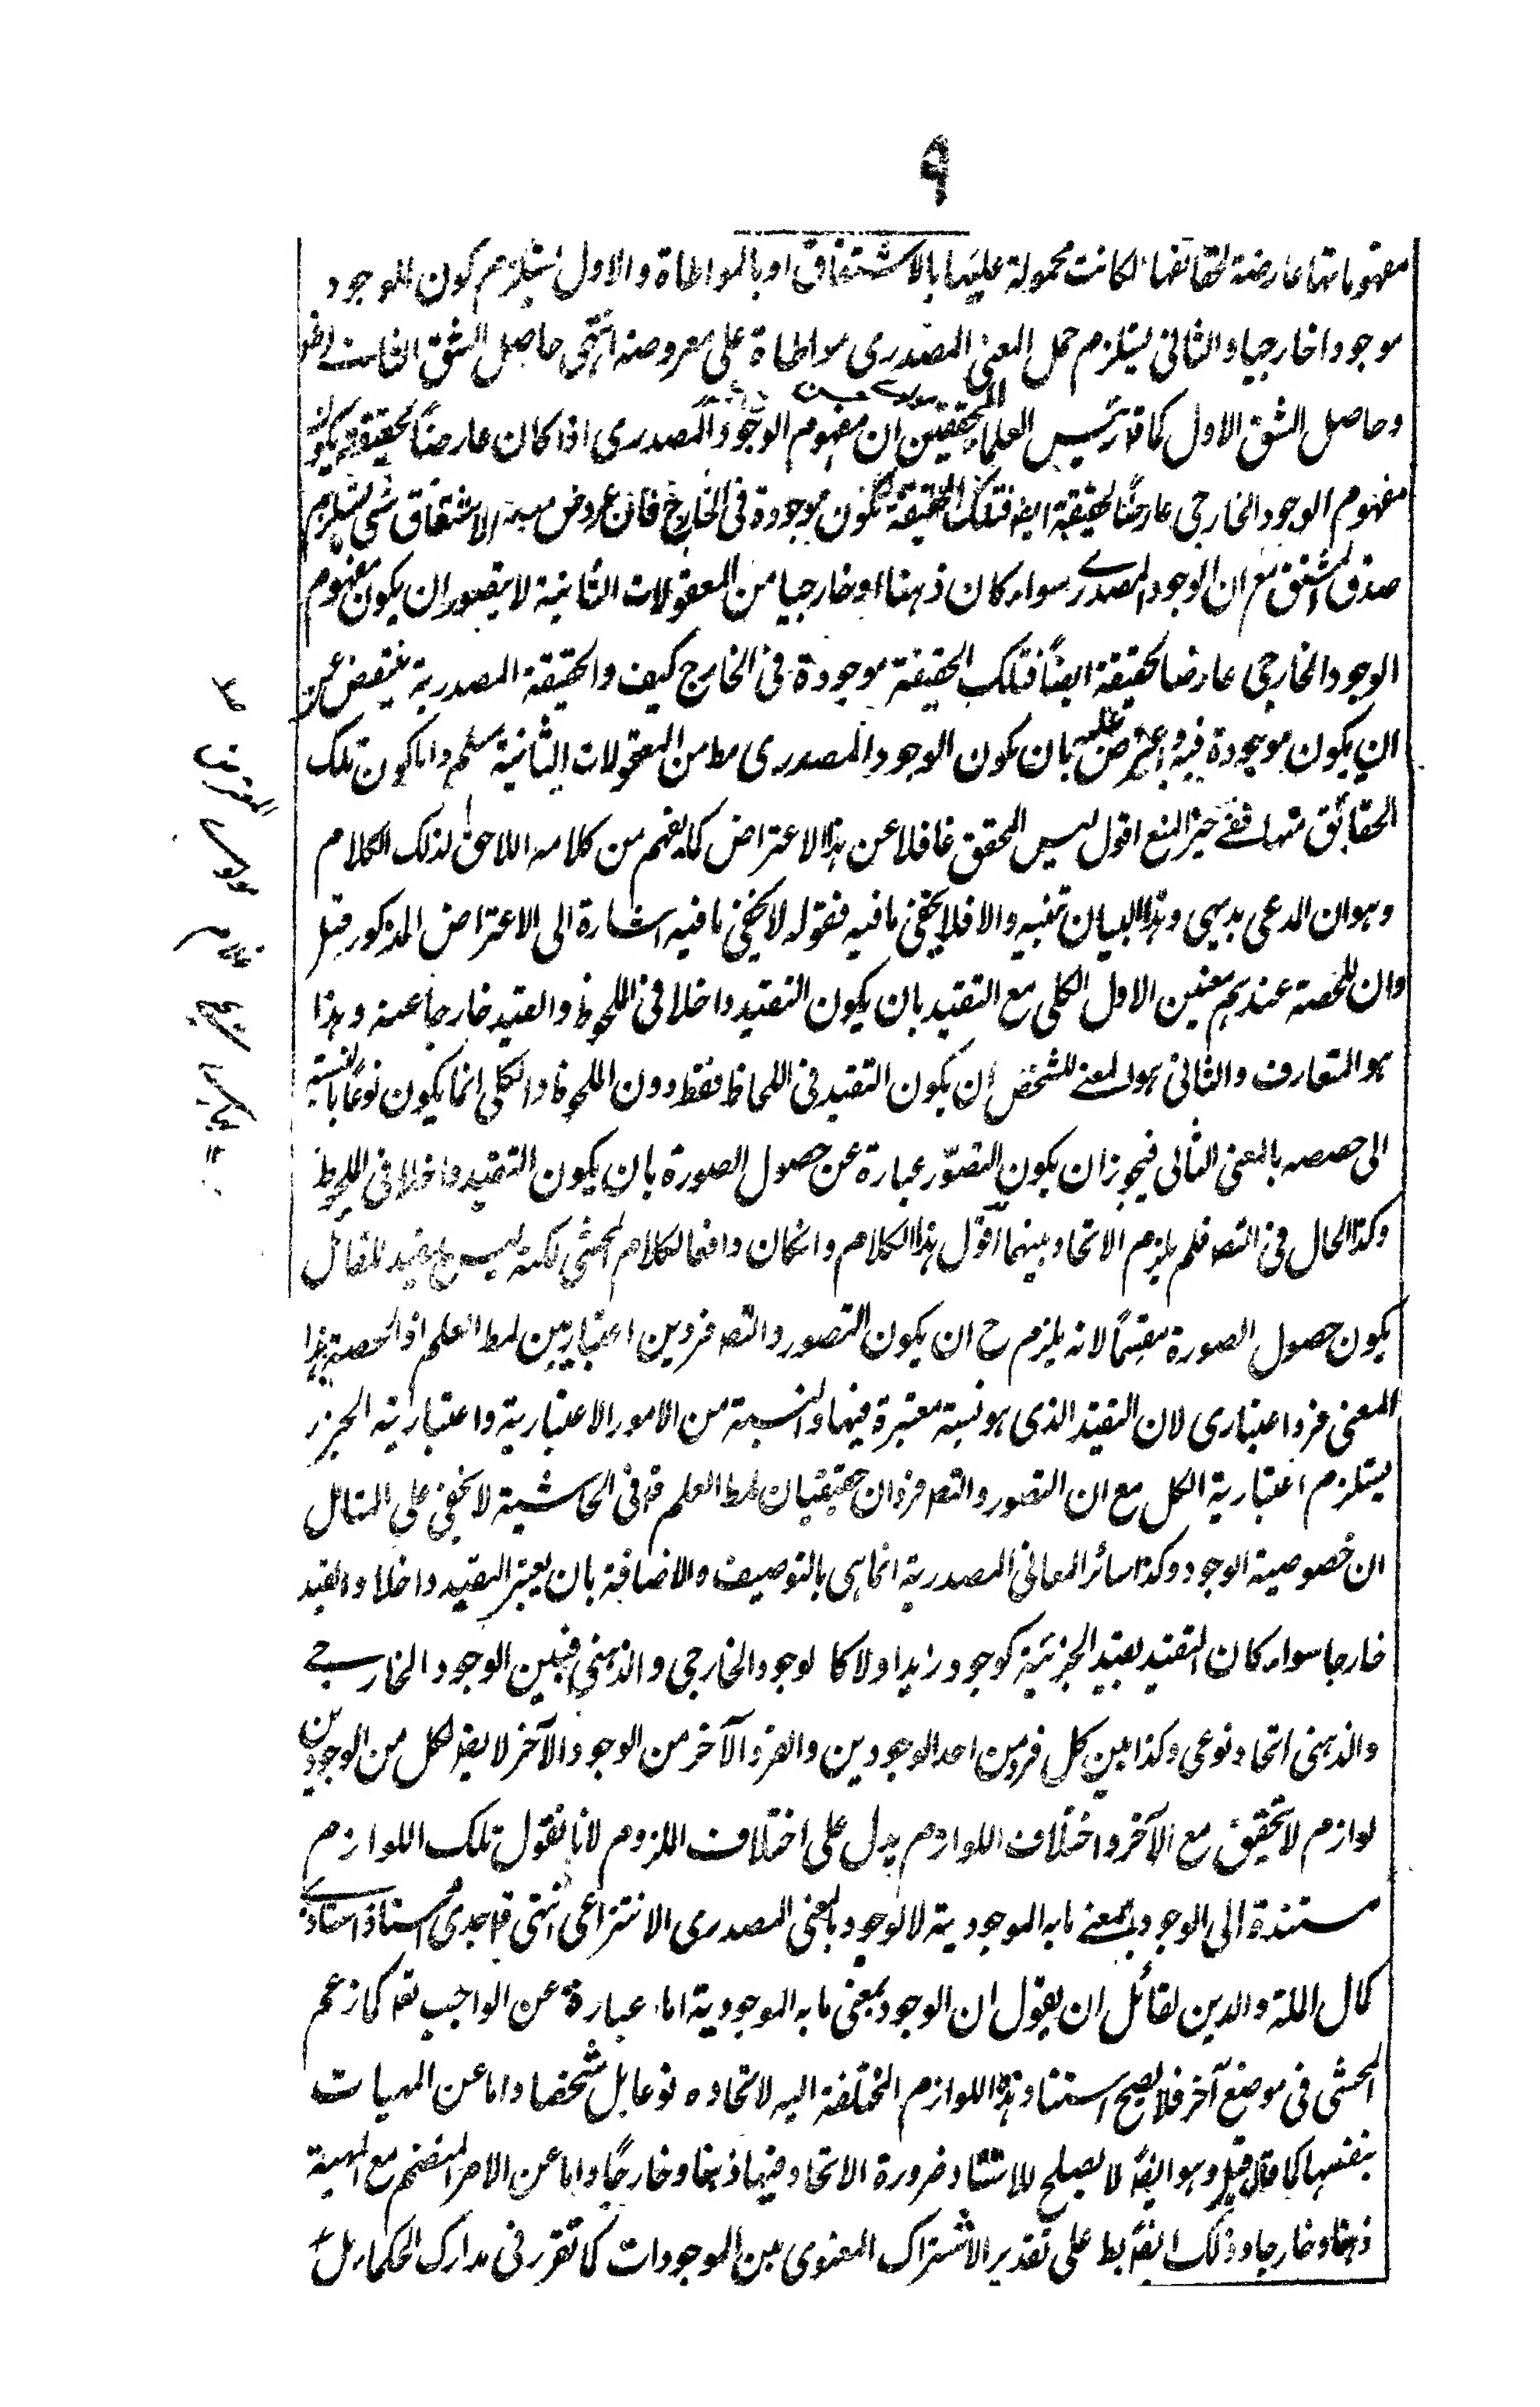 ٩
مفهوماتها عارضة لحقائقها لكانت محمولة عليها بالاشتقاق او بالمواطاة والاول يستلزم كون الموجود
موجودا خارجيا والثانى يستلزم حمل المعنى المصدرى مواطاة على معروضه انتهى حاصل الشق الثانى
وحاصل الشق الاول كما قال رئيس العلماء المحققين ان مفهوم الوجود المصدرى اذا كان عارضاً لحقيقة يكون
مفهوم الوجود الخارجى عارضاً لحقيقة ايضا فتلك الحقيقة تكون موجودة فى الخارج فان عروض مبدء الاشتقاق لشئ يستلزم
صدق المشتق مع ان الوجود المصدرى سواء كان ذهنيا او خارجيا من المعقولات الثانية لا يتصور ان يكون مفهوم
الوجود الخارجى عارضا لحقيقة ايضاً فتلك الحقيقة موجودة فى الخارج كيف والحقيقة المصدرية عن
ان يكون موجودة فيه واعترض عليه بان كون الوجود المصدرى مط من المعقولات الثانية مسلم واما كون تلك
الحقائق منها ففى حيز المنع اقول ليس المحقق غافلا عن هذا الاعتراض كما يفهم من كلامه اللاحق لذلك الكلام
وهو ان المدعى بديهى وهذا البيان تنبيه والا فلا يخفى ما فيه فقوله لا يخفى ما فيه اشارة الى الاعتراض المذكور قيل
وان للحصة عندهم معنيين الاول الكلى مع التقييد بان يكون التقييد داخلا فى الملحوظ والقيد خارجا عنه وهذا
هو المتعارف والثانى هو المعنى للشخص ان يكون التقييد فى اللحاظ فقط دون الملحوظ والكلى انما يكون نوعاً بالنسبة
الى حصصه بالمعنى الثانى فيجوز ان يكون التصوّر عبارة عن حصول الصورة بان يكون التقييد داخلا فى الملحوظ
وكذا الحال فى التصـ فلم يلزم الاتحاد بينهما اقول هذا الكلام وان كان دافعا لكلام المحشى لكنه ليس بمفيد للقائل
يكون حصول الصورة مقسماً لانه يلزم ح ان يكون التصور والتصـ فردين اعتباريين لمط العلم اذ الحصة بهذا
المعنى فرد اعتبارى لان التقييد الذى هو نسبة معتبرة فيها والنسبة من الامور الاعتبارية واعتبارية الجزء
يستلزم اعتبارية الكل مع ان التصور والتصـ فردان حقيقيان لمط العلم قال فى الحاشية لا يخفى على المتامل
ان خصوصية الوجود وكذا سائر المعانى المصدرية انما هى بالتوصيف والاضافة بان يعتبر التقييد داخلا والقيد
خارجا سواء كان التقييد بقيد الجزئية كوجود زيد اولا كالوجود الخارجى والذهنى فبين الوجود الخارجى
والذهنى اتحاد نوعى وكذا بين كل فرد من احد الوجودين والفرد الآخر من الوجود الآخر لا يقال لكل من الوجودين
لوازم لا تحقق مع الآخر واختلاف اللوازم يدل على اختلاف الملزوم لانا نقول تلك اللوازم
مستندة الى الوجود بمعنى ما به الموجودية لا الوجود بالمعنى المصدرى الانتزاعى انتهى قال جدى استاذ استاذى
كمال الملة والدين لقائل ان يقول ان الوجود بمعنى ما به الموجودية اما عبارة عن الواجب تعـ كما زعم
المحشى فى موضع آخر فلا يصح استناد هذه اللوازم المختلفة اليه لاتحاده نوعا بل شخصا واما عن المهيات
بنفسها كما قال قيل وهو ايضاً لا يصلح للاستناد ضرورة الاتحاد فيها ذهنا وخارجاً واما عن الامر المنضم مع المهية
ذهنا وخارجا وذلك ايضاً بط على تقدير الاشتراك المعنوى بين الموجودات كما تقرر فى مدارك الحكماء بل